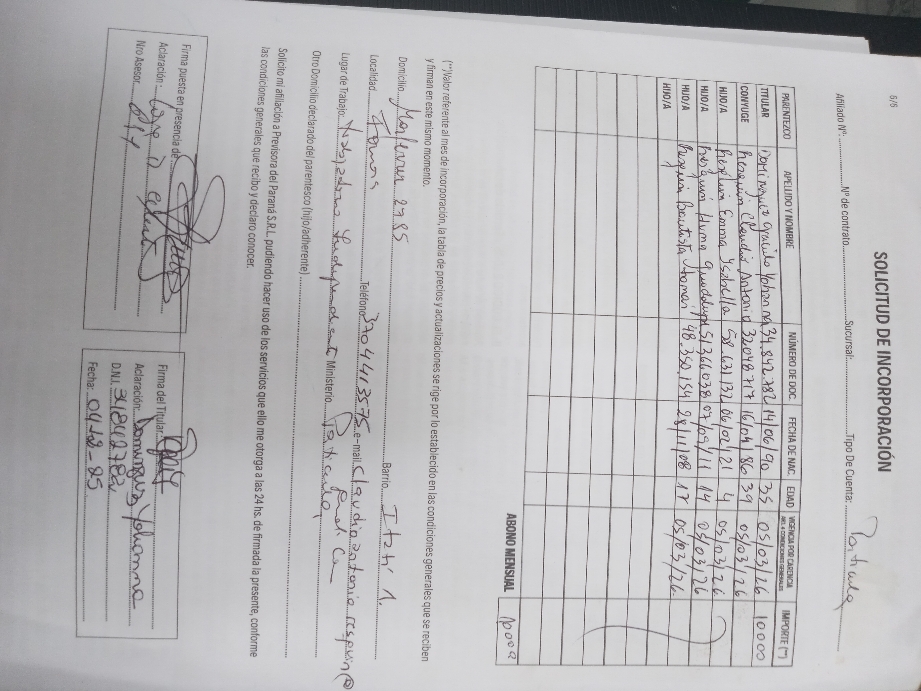 6/6
SOLICITUD DE INCORPORACIÓN
Particular
Afiliado Nº: Nº de contrato Sucursal: Tipo De Cuenta:
PARENTEZCO APELLIDO Y NOMBRE NÚMERO DE DOC FECHA DE NAC EDAD VIGENCIA POR CARENCIA IMPORTE (**)
TITULAR Dominguez Yohanna 34.842.782 14/06/90 35 05/03/26 10000
CONYUGE Resquin Claudio Antonio 32.048.717 16/04/86 39 05/03/26
HIJO/A Resquin Emma Ysabella 58.631.132 06/02/21 4 05/03/26
HIJO/A Resquin Luna Guadalupe 51.366.038 07/09/11 14 05/03/26
HIJO/A Resquin Bautista 48.350.154 28/11/08 17 05/03/26
HIJO/A
ABONO MENSUAL 10000
(**)Valor referente al mes de incorporación, la tabla de precios y actualizaciones se rige por lo establecido en las condiciones generales que se reciben
y firman en este mismo momento.
Domicilio 2785
Localidad Formosa Teléfono 3704413575 Barrio Itatí 1.
e-mail claudioantonioresquin@
Lugar de Trabajo: Trabajadora Independiente Ministerio Particular
Otro Domicilio declarado del parentesco (hijo/adherente)
Solicito mi afiliación a Previsora del Paraná S.R.L. pudiendo hacer uso de los servicios que ello me otorga a las 24 hs. de firmada la presente, conforme
las condiciones generales que recibo y declaro conocer.
Firma puesta en presencia de
Aclaración:
Nro Asesor
Firma del Titular:
Aclaración: Dominguez Yohanna
D.N.I. 34842782
Fecha: 04-12-25